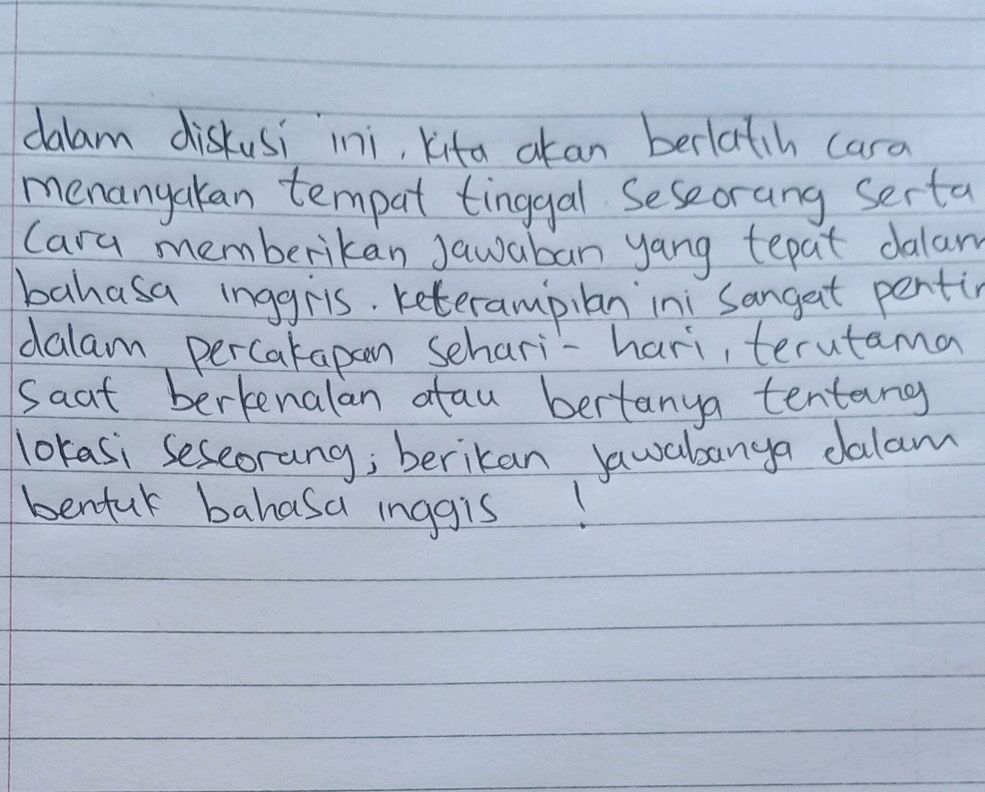 dalam diskusi ini, kita akan berlatih cara
menanyakan tempat tinggal seseorang serta
cara memberikan jawaban yang tepat dalam
bahasa inggris. keterampilan ini sangat pentin
dalam percakapan sehari-hari, terutama
saat berkenalan atau bertanya tentang
lokasi seseorang; berikan jawabanya dalam
bentuk bahasa inggis !